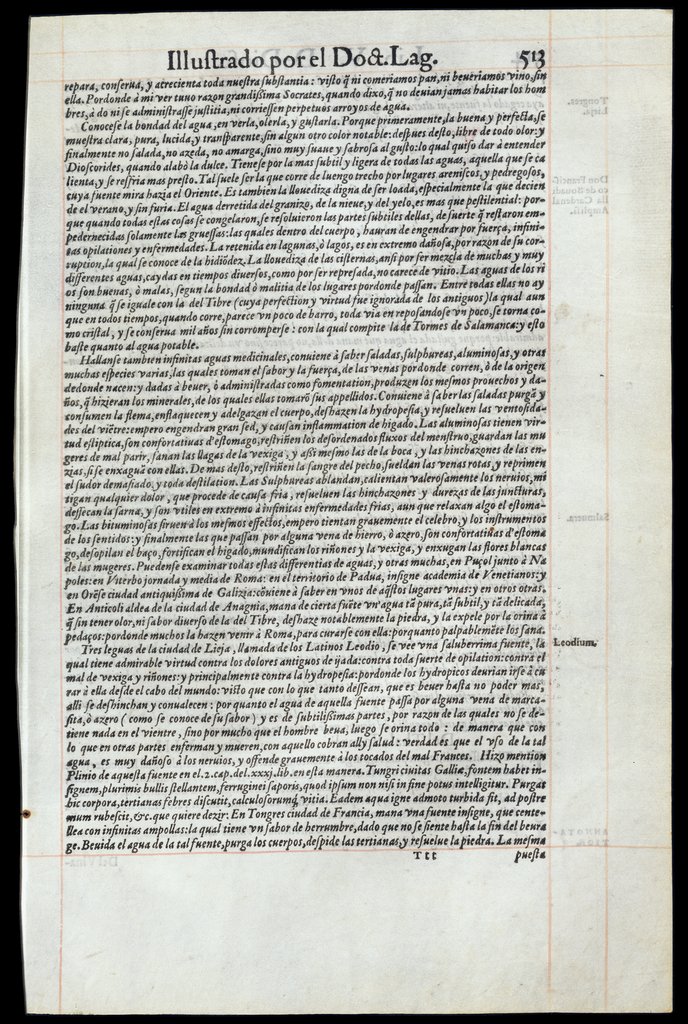 Illustrado por el Doct. Lag. 513
repara, conserua, y acrecienta toda nuestra substantia: visto q̃ ni comeriamos pan, ni beueriamos vino, sin
ella. Pordonde à mi ver tuuo razon grandissima Socrates, quando dixo, q̃ no deuian jamas habitar los hom
bres, à do ni se administrasse justitia, ni corriessen perpetuos arroyos de agua.
Conocese la bondad del agua, en verla, olerla, y gustarla. Porque primeramente, la buena y perfecta, se
muestra clara, pura, lucida, y transparente, sin algun otro color notable: despues desto, libre de todo olor: y
finalmente no salada, no azeda, no amarga, sino muy suaue y sabrosa al gusto: lo qual quiso dar à entender
Dioscorides, quando alabò la dulce. Tienese por la mas subtil y ligera de todas las aguas, aquella que se ca
lienta, y se resfria mas presto. Tal suele ser la que corre de luengo trecho por lugares areniscos, y pedregosos,
cuya fuente mira hazia el Oriente. Es tambien la llouediza digna de ser loada, especialmente la que decien
de el verano, y sin furia. El agua derretida del granizo, de la nieue, y del yelo, es mas que pestilential: por-
que quando todas estas cosas se congelaron, se resoluieron las partes subtiles dellas, de suerte q̃ restaron em-
pedernecidas solamente las gruessas: las quales dentro del cuerpo, hauran de engendrar por fuerça, infini-
tas opilationes y enfermedades. La retenida en lagunas, ò lagos, es en extremo dañosa, por razon de su cor-
ruption, la qual se conoce de la hidiõdez. La llouediza de las cisternas, ansi por ser mezcla de muchas y muy
differentes aguas, caydas en tiempos diuersos, como por ser represada, no carece de vitio. Las aguas de los ri
os son buenas, ò malas, segun la bondad ò malitia de los lugares pordonde passan. Entre todas ellas no ay
ninguna q̃ se iguale con la del Tibre (cuya perfection y virtud fue ignorada de los antiguos) la qual aun
que en todos tiempos, quando corre, parece vn poco de barro, toda via en reposandose vn poco, se torna co-
mo cristal, y se conserua mil años sin corromperse: con la qual compite la de Tormes de Salamanca: y esto
baste quanto al agua potable.
Hallanse tambien infinitas aguas medicinales, conuiene à saber saladas, sulphureas, aluminosas, y otras
muchas especies varias, las quales toman el sabor y la fuerça, de las venas pordonde corren, ò de la origen
dedonde nacen: y dadas à beuer, ò administradas como fomentation, produzen los mesmos prouechos y da-
ños, q̃ hizieran los minerales, de los quales ellas tomarõ sus appellidos. Conuiene à saber las saladas purgã y
consumen la flema, enflaquecen y adelgazan el cuerpo, deshazen la hydropesia, y resueluen las ventosida-
des del viẽtre: empero engendran gran sed, y causan inflammation de higado. Las aluminosas tienen vir-
tud estiptica, son confortatiuas d'estomago, restriñen los desordenados fluxos del menstruo, guardan las mu
geres de mal parir, sanan las llagas de la vexiga, y assi mesmo las de la boca, y las hinchazones de las en-
zias, si se enxaguã con ellas. De mas desto, restriñen la sangre del pecho, sueldan las venas rotas, y reprimen
el sudor demasiado, y toda destilation. Las Sulphureas ablandan, calientan valerosamente los neruios, mi
tigan qualquier dolor, que procede de causa fria, resueluen las hinchazones y durezas de las juncturas,
dessecan la sarna, y son vtiles en extremo à infinitas enfermedades frias, aun que relaxan algo el estoma-
go. Las bituminosas siruen à los mesmos effectos, empero tientan grauemente el celebro, y los instrumentos
de los sentidos: y finalmente las que passan por alguna vena de hierro, ò azero, son confortatiuas d'estoma
go, desopilan el baço, fortifican el higado, mundifican los riñones y la vexiga, y enxugan las flores blancas
de las mugeres. Puedense examinar todas estas differentias de aguas, y otras muchas, en Puçol junto à Na
poles: en Viterbo jornada y media de Roma: en el territorio de Padua, insigne academia de Venetianos: y
en Orẽse ciudad antiquissima de Galizia: cõuiene à saber en vnos de aq̃stos lugares vnas: y en otros otras.
En Anticoli aldea de la ciudad de Anagnia, mana de cierta fuẽte vn'agua tã pura, tã subtil, y tã delicada,
q̃ sin tener olor, ni sabor diuerso de la del Tibre, deshaze notablemente la piedra, y la expele por la orina à
pedaços: pordonde muchos la hazen venir à Roma, para curarse con ella: porquanto palpablemẽte los sana.
Tres leguas de la ciudad de Lieja, llamada de los Latinos Leodio, se vee vna saluberrima fuente, la
Leodium.
qual tiene admirable virtud contra los dolores antiguos de ijada: contra toda suerte de opilation: contra el
mal de vexiga y riñones: y principalmente contra la hydropesia: pordonde los hydropicos deurian irse à cu
rar à ella desde el cabo del mundo: visto que con lo que tanto dessean, que es beuer hasta no poder mas,
alli se deshinchan y conualecen: por quanto el agua de aquella fuente passa por alguna vena de marca-
sita, ò azero (como se conoce de su sabor) y es de subtilissimas partes, por razon de las quales no se de-
tiene nada en el vientre, sino por mucho que el hombre beua, luego se orina todo: de manera que con
lo que en otras partes enferman y mueren, con aquello cobran ally salud: verdad es que el vso de la tal
agua, es muy dañoso à los neruios, y offende grauemente à los tocados del mal Frances. Hizo mention
Plinio de aquesta fuente en el.2.cap.del.xxxj.lib.en esta manera. Tungri ciuitas Galliæ, fontem habet in-
signem, plurimis bullis stellantem, ferruginei saporis, quod ipsum non nisi in fine potus intelligitur. Purgat
hic corpora, tertianas febres discutit, calculosorumq́ vitia. Eadem aqua igne admoto turbida fit, ad postre
mum rubescit, &c. que quiere dezir: En Tongres ciudad de Francia, mana vna fuente insigne, que cente-
llea con infinitas ampollas: la qual tiene vn sabor de herrumbre, dado que no se siente hasta la fin del beura
ge. Beuida el agua de la tal fuente, purga los cuerpos, despide las tertianas, y resuelue la piedra. La mesma
Ttt puesta